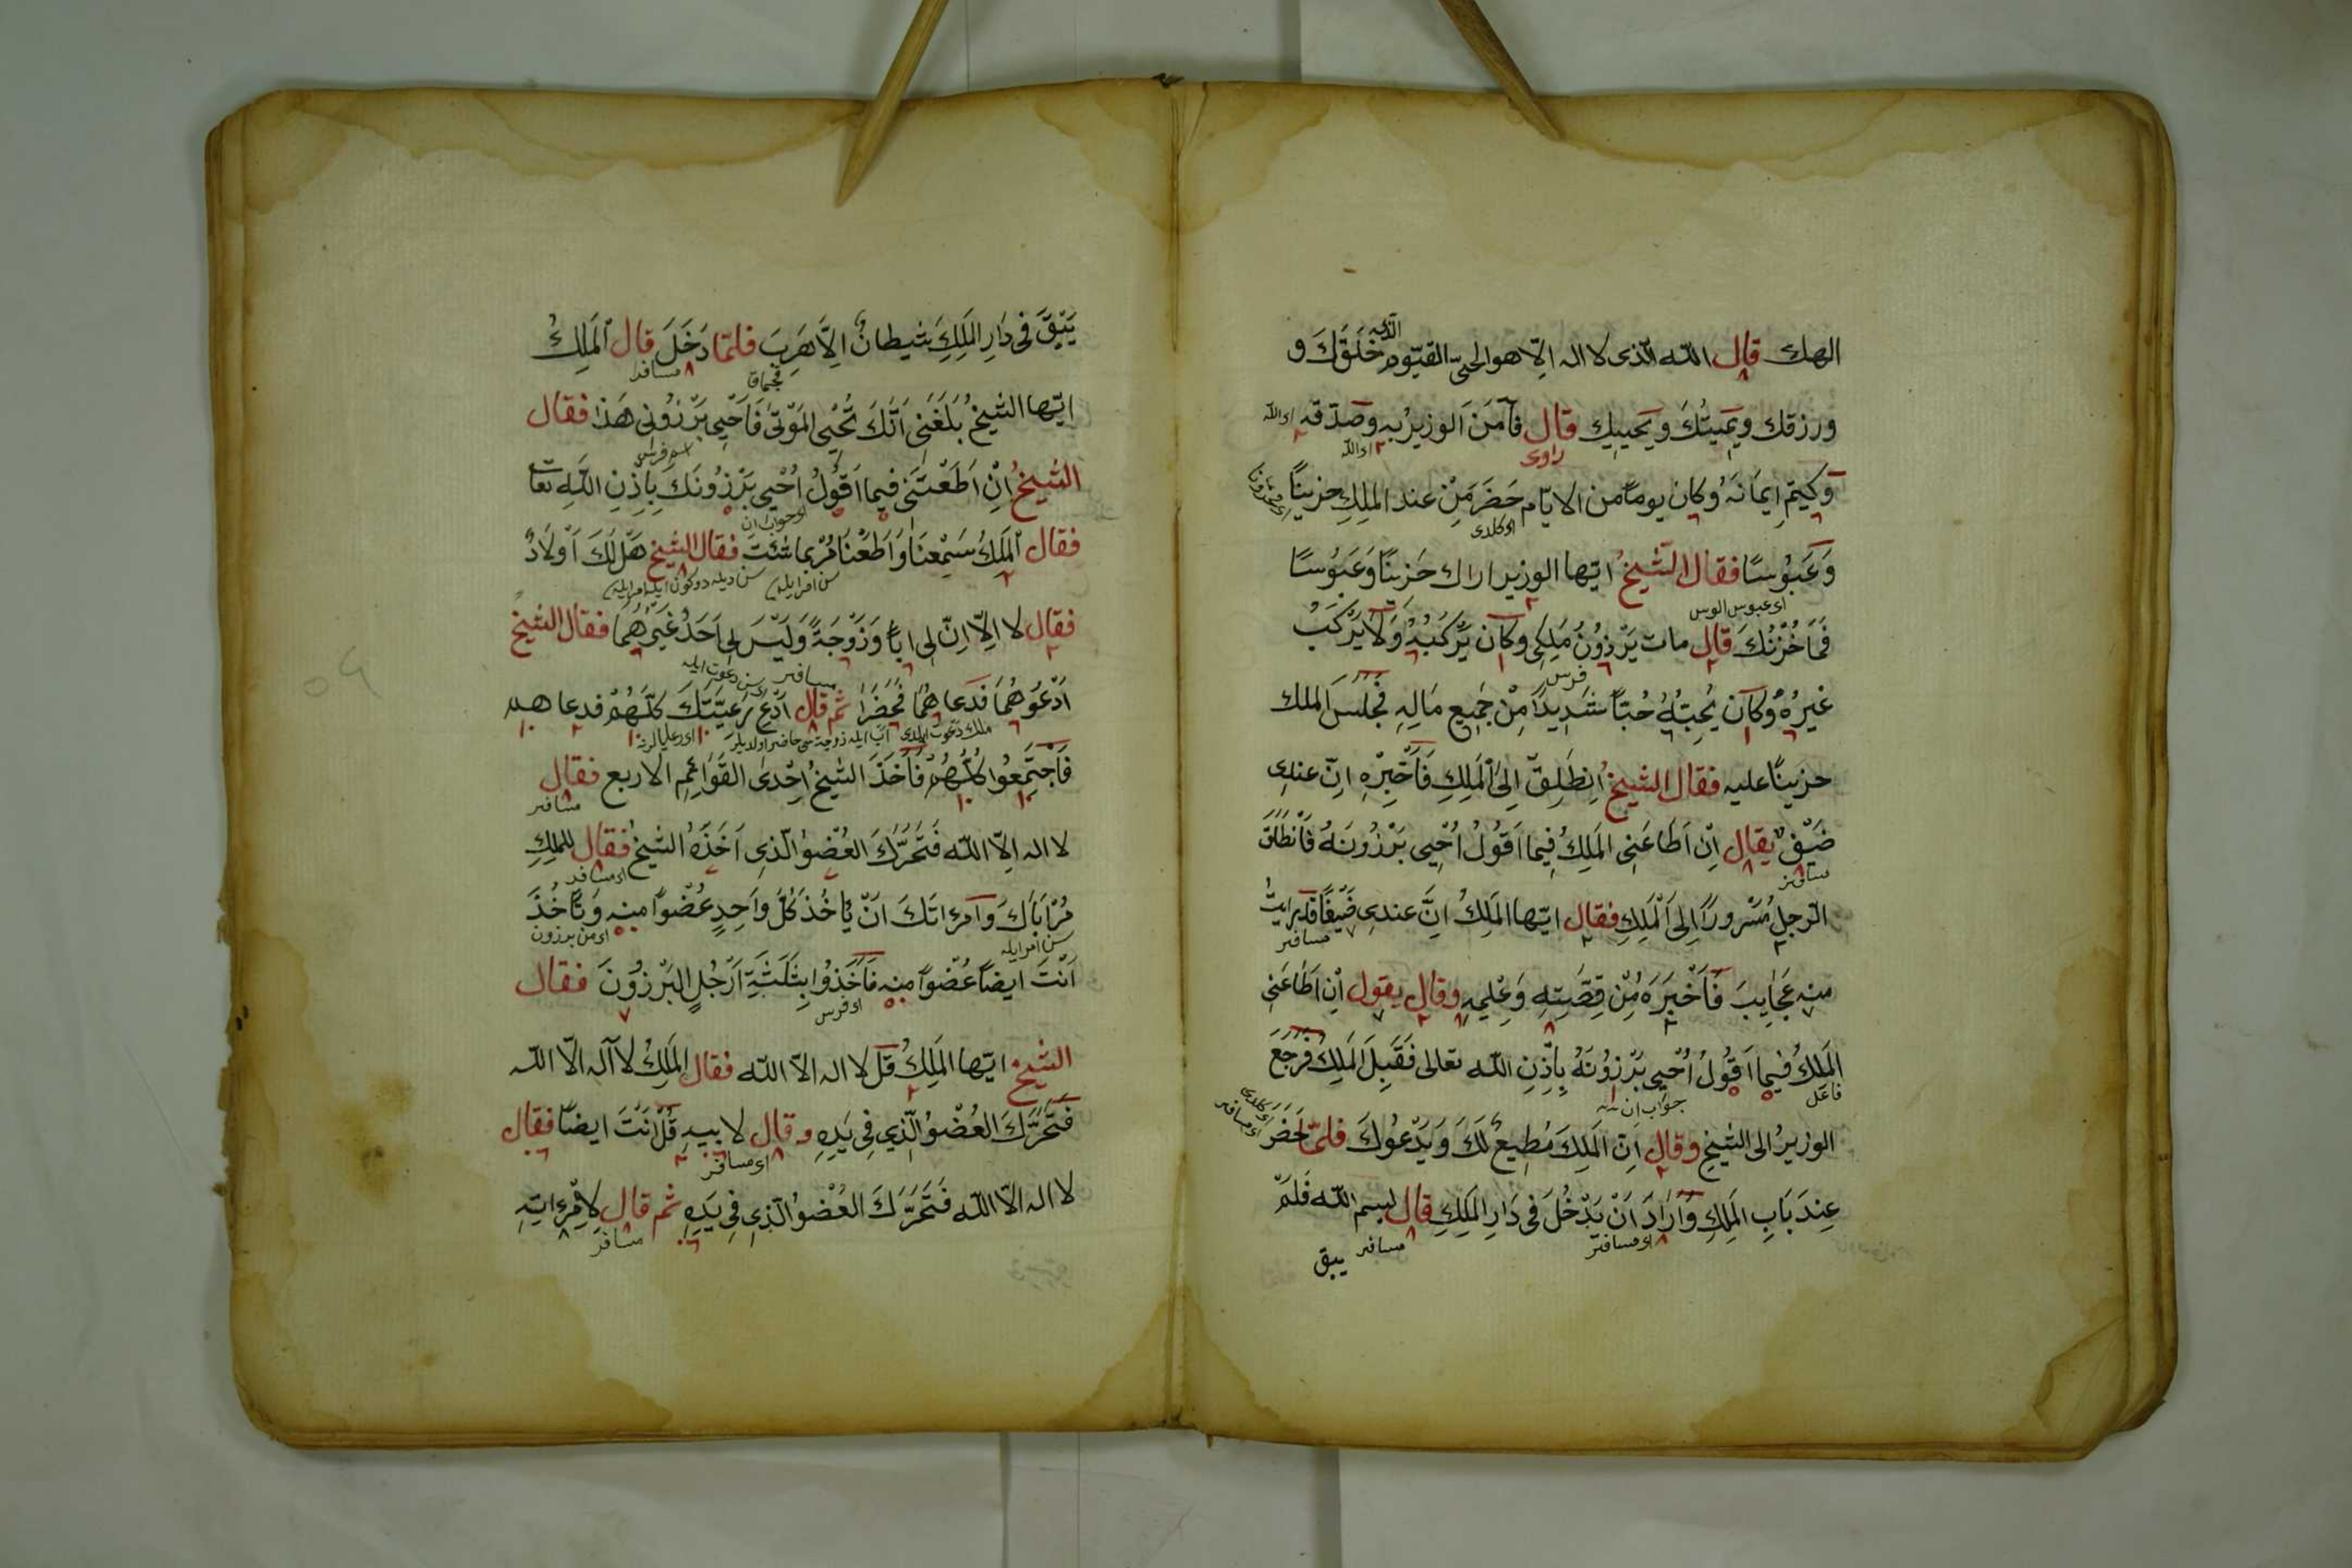 الهك قال الله الذى لا اله الّا هو الحىّ القيّوم الذى خَلَقَكَ و
ورزقك ويميتُكَ ويحييك قال فآمَنَ الوزيرُ به وصدّقه
وكتم ايمَانَهُ وكان يوماً من الايّام حَضَرَ مِنْ عند الملِكِ حزيناً
وَعَبُوسًا فقال الشيخُ ايّها الوزير اراك حَزينًا وَعَبُوسًا
فَمَا حُزْنُكَ قال مات بَرْذِوْنُ مَلِكِى وكان يَرْكَبُهُ وَلَا يَرْكَبُ
غيرُهُ وكان يُحِبُّهُ حُبّاً شَدِيدًا مِنْ جَمِيعِ مَالِهِ فَجَلَسَ الملك
حزيناً عليه فقال الشيخُ اِنطَلِقْ اِلىَ الْمَلِكِ فَاَخْبِرْهِ انّ عندى
ضَيْفٌ يقال اِنْ اَطَاعَنِى المَلِكُ فِيما اَقُولُ اُحْيِى بَرْزُونَهُ فَانْطَلَقَ
الرّجلُ مَسْروراً اِلىَ الْمَلِكِ فقال ايّها المَلِكُ اِنَّ عندِى ضَيْفًا قد رايتُ
منه عَجَايِبَ فَاَخْبَرَهُ مِنْ قِصَّتِهِ وَعِلْمِهِ وقال يقول اِنْ اَطَاعَنِى
المَلِكُ فِيما اَقُولُ اُحْيِى بَرْزُوْنَهُ بِاِذْنِ اللّه تعالى فَقَبِلَ المَلِكُ فَرَجَعَ
الوزيرُ الى الشيخِ وقال اِنّ المَلِكَ مُطِيعٌ لَكَ وَيَدْعُوكَ فلمّا حَضَرَ
عِندَ بَابِ المَلِكِ وَاَرَادَ اَنْ يَدْخُلَ فى دَارِ المَلِكِ قال بسم اللّه فَلَمْ
يبق
يَبْقَ فى دَارِ المَلِكِ شيطانٌ اِلاَّ هَرَبَ فلمّا دَخَلَ قال المَلِكُ
ايّها الشيخُ بَلَغَنِى اَنَّكَ تُحْيِى المَوْتىَ فَاَحْيِى بَرْزُونِى هَذا فقال
الشيخُ اِنْ اَطَعْتَنِى فيما اَقُولُ اُحْيِى بَرْزُونَكَ بِاِذْنِ اللّهِ تعا
فقال المَلِكُ سَمِعْنَا وَاَطَعْنَا مُرْ بما شئتَ فقال الشيخ هَلْ لَكَ اَوْلَادٌ
فقال لا اِلّا انّ لِى اباً وَزَوْجَةً وَلَيْسَ لِى اَحَدٌ غَيْرُهُمَا فقال الشيخُ
اَدْعُوهُمَا فَدَعاهُمَا فَحَضَرَا ثم قال اَدْعُ رَعِيَّتَكَ كُلَّهُمْ فدعاهم
فَاجتَمَعُوا كُلُّهُمْ فَاَخَذَ الشيخُ اِحْدىَ القَوَائِمِ الاربع فقال
لا اله اِلاّ اللّه فَتَحَرَّكَ العُضْوُ الّذِى اَخَذَهُ الشيخ فقال للمَلِكِ
مُرْ اَبَاكَ وَامرَاتَكَ انْ يَاْخُذَ كُلُّ وَاحِدٍ عُضْواً منه وَتَاْخُذَ
اَنْتَ ايضاً عُضْواً منه فَاَخَذُوا بِثَلَثَةِ اَرْجُلِ البَرْزُوْنَ فقال
الشيخ ايّها المَلِكُ قُلْ لا اله الاّ اللّه فقال المَلِكُ لا آله الّا اللّه
فَتَحَرَّكَ العُضْوُ الّذِى فِى يَدِهِ وقال لابيهِ قُلْ اَنْتَ ايضاً فقال
لا اله الاّ اللّه فَتَحَرَّكَ العُضْوُ الّذِى فِى يَدِهِ ثم قال لاِمْرَاتِهِ